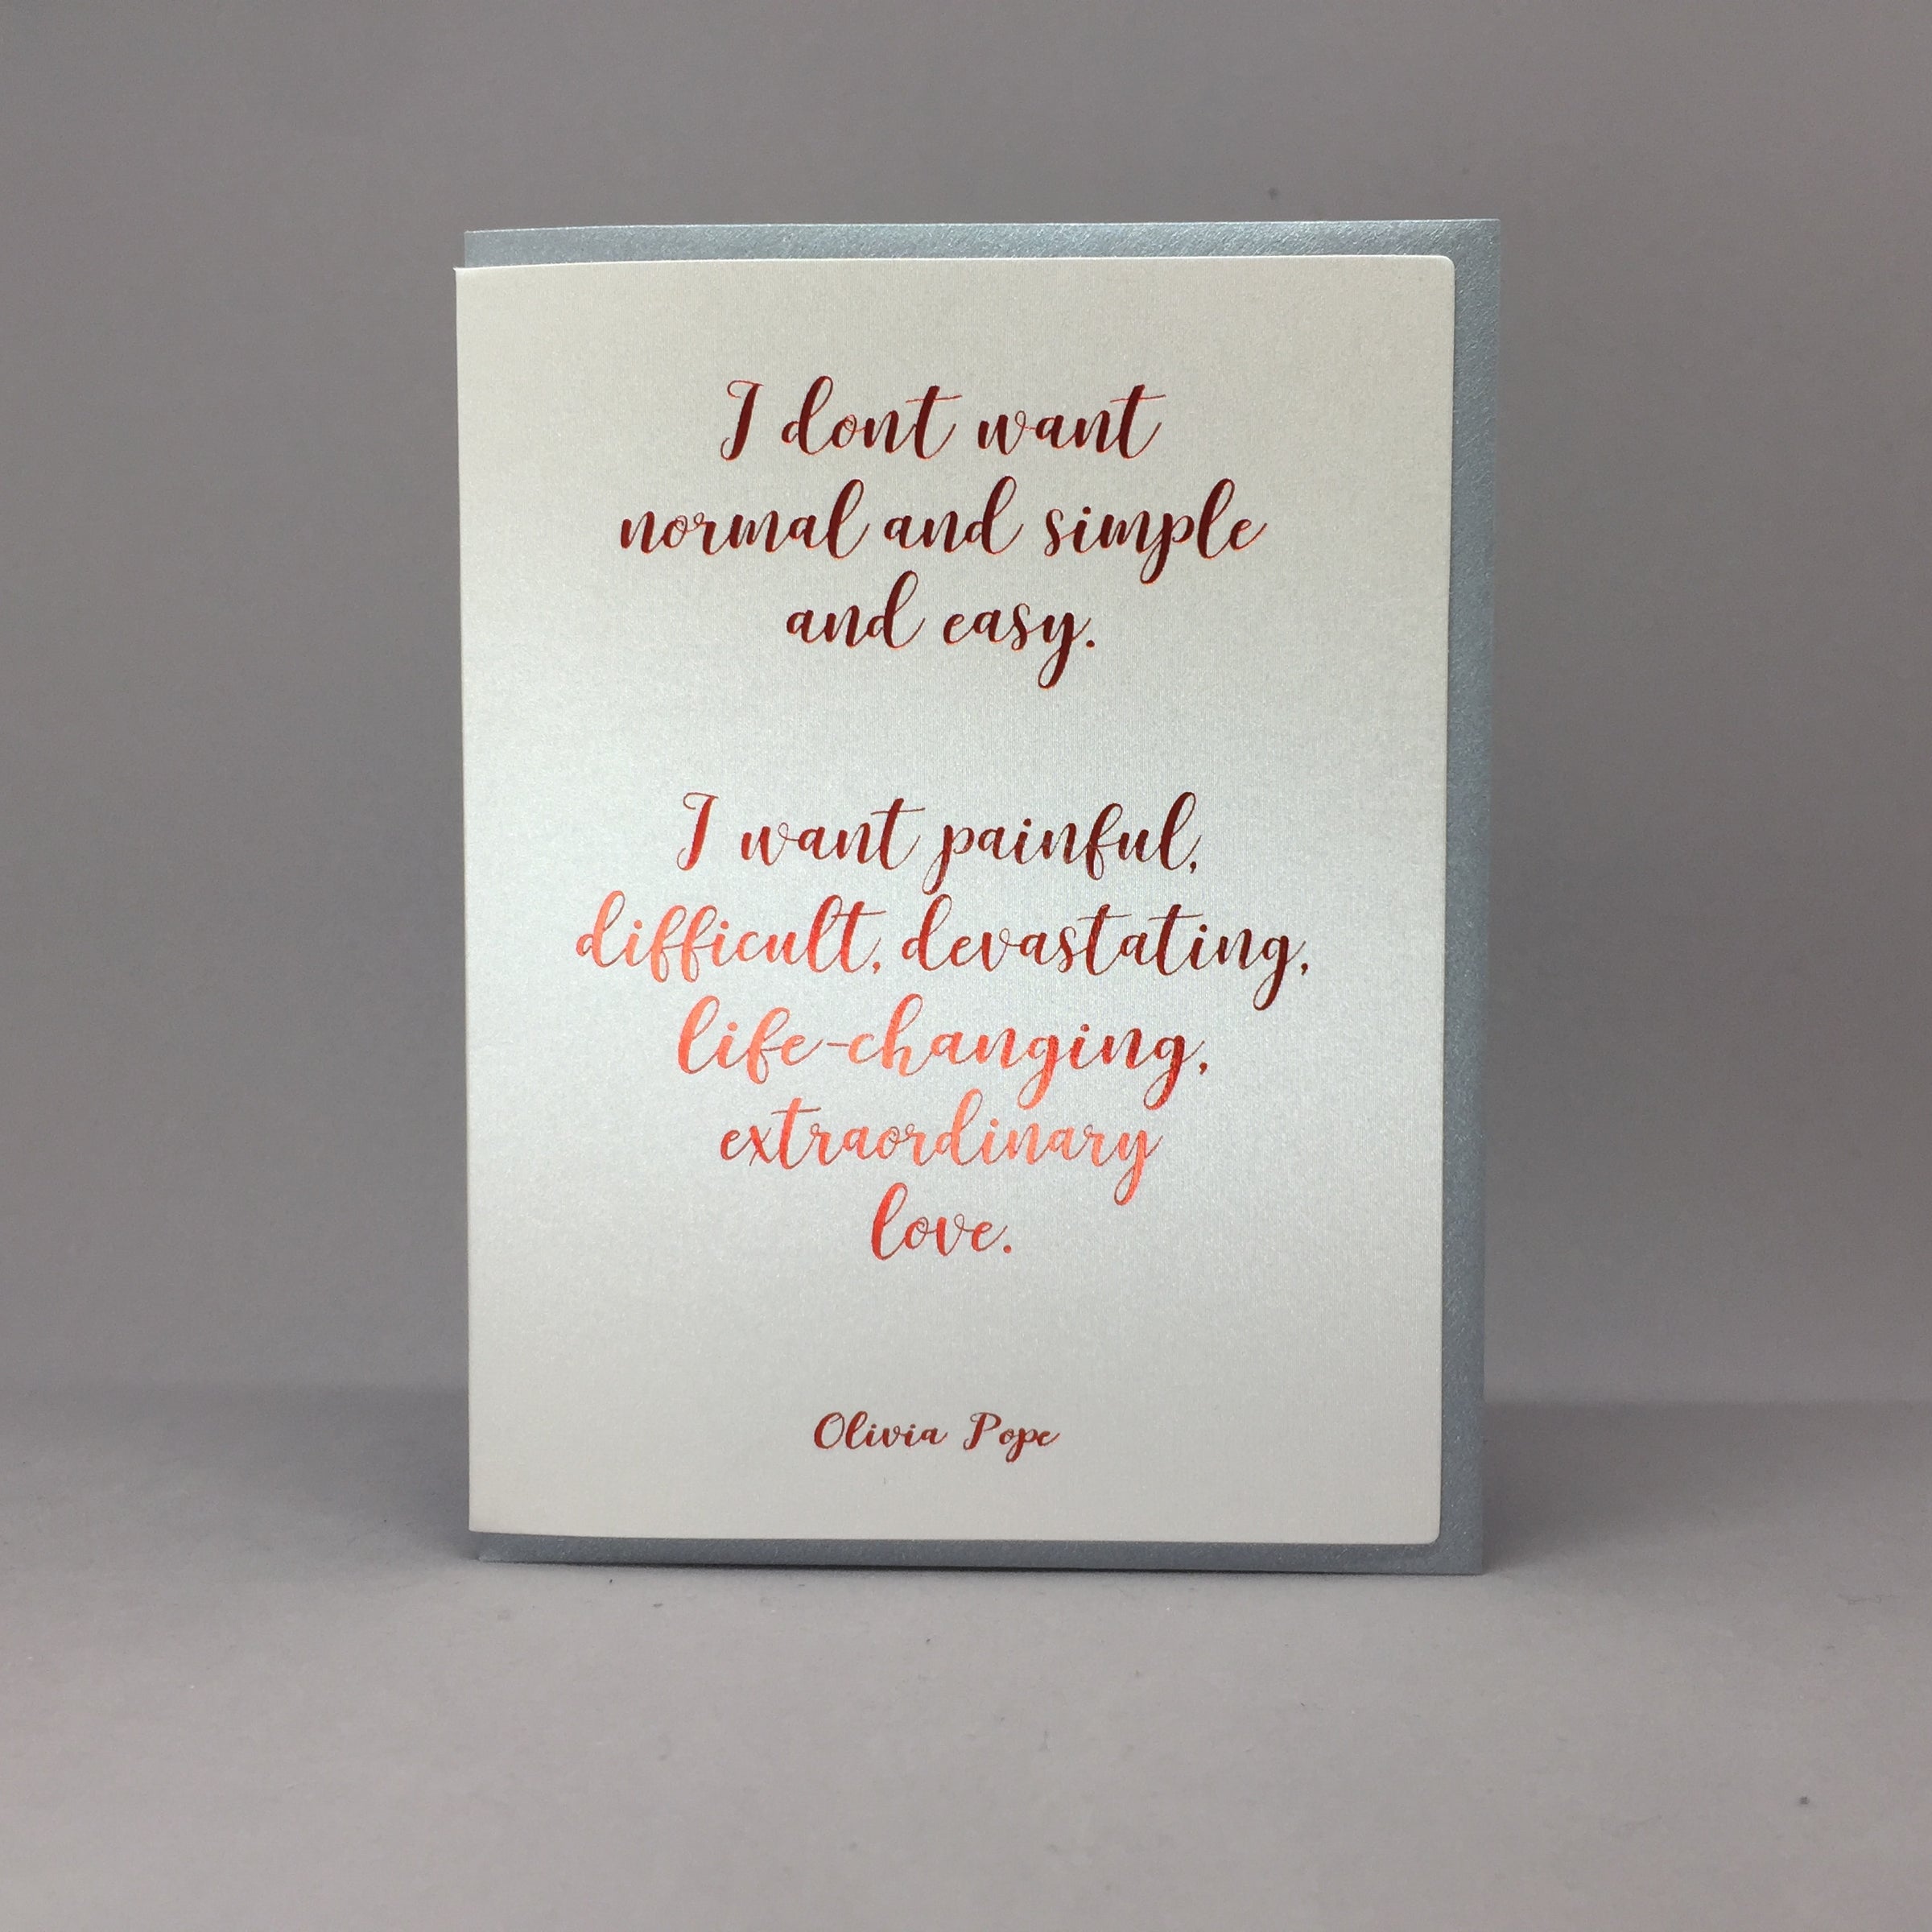 I dont want
normal and simple
and easy.
I want painful,
difficult, devastating,
life-changing,
extraordinary
love.
Olivia Pope